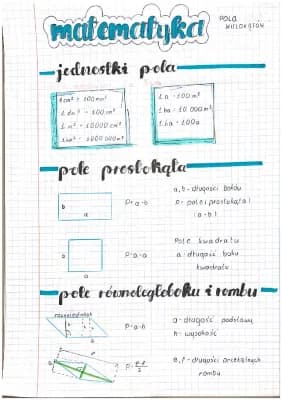 matematyka
POLA
WIELOKĄTÓW
jednostki pola
1 cm² = 100 mm²
1 dm² = 100 cm²
1 m² = 10000 cm²
1 km² = 1000 000 m²
1 a = 100 m²
1 ha = 10 000 m²
1 ha = 100 a
pole prostokąta
b
a
P = a·b
a, b - długości boków
P - pole prostokąta
(a·b)
a
P = a·a
Pole kwadratu
a - długość boku
kwadratu
pole równoległoboku i rombu
równoległobok
h
P = a·h
a - długość podstawy
h - wysokość
e, f - długości przekątnych
rombu